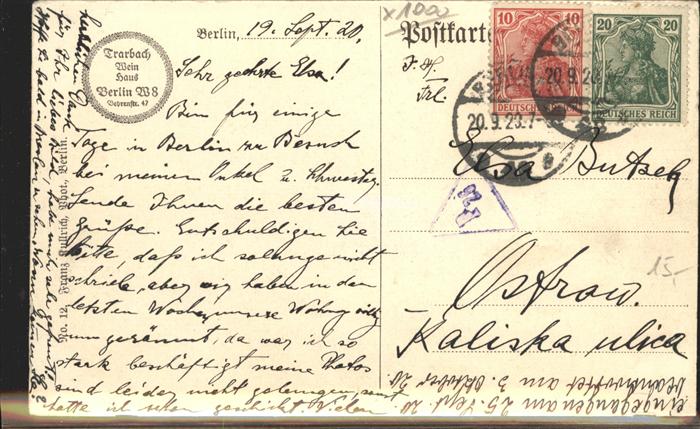 Trarbach
Wein
Haus
Berlin W8
Behrenstr. 47
Berlin, 19. Sept. 20.
Sehr geehrte Elsa!
Bin für einige
Tage in Berlin zu Besuch
bei meinem Onkel u. Schwester.
Sende Ihnen die besten
Grüße. Entschuldigen Sie
bitte, daß ich so lange nicht
schrieb, aber wir haben in den
letzten Wochen unsere Wohnung
umgeräumt, da war ich so
stark beschäftigt meine Photos
sind leider nicht gelungen, sonst
hätte ich schon geschickt. Vielen
herzlichen Dank
für Ihr liebes Bild, hat mich sehr gefreut
No. 12. Franz Phot. Berlin.
x1000
Postkarte
10 10
DEUTSCHES REICH
20 20
DEUTSCHES REICH
20.9.20.7-
20.9.20
Frl.
Elsa Butsch
Ostrow.
Kaliska ulica
15,-
eingegangen am 25. Sept. 20
beantwortet am 3. Oktober 20